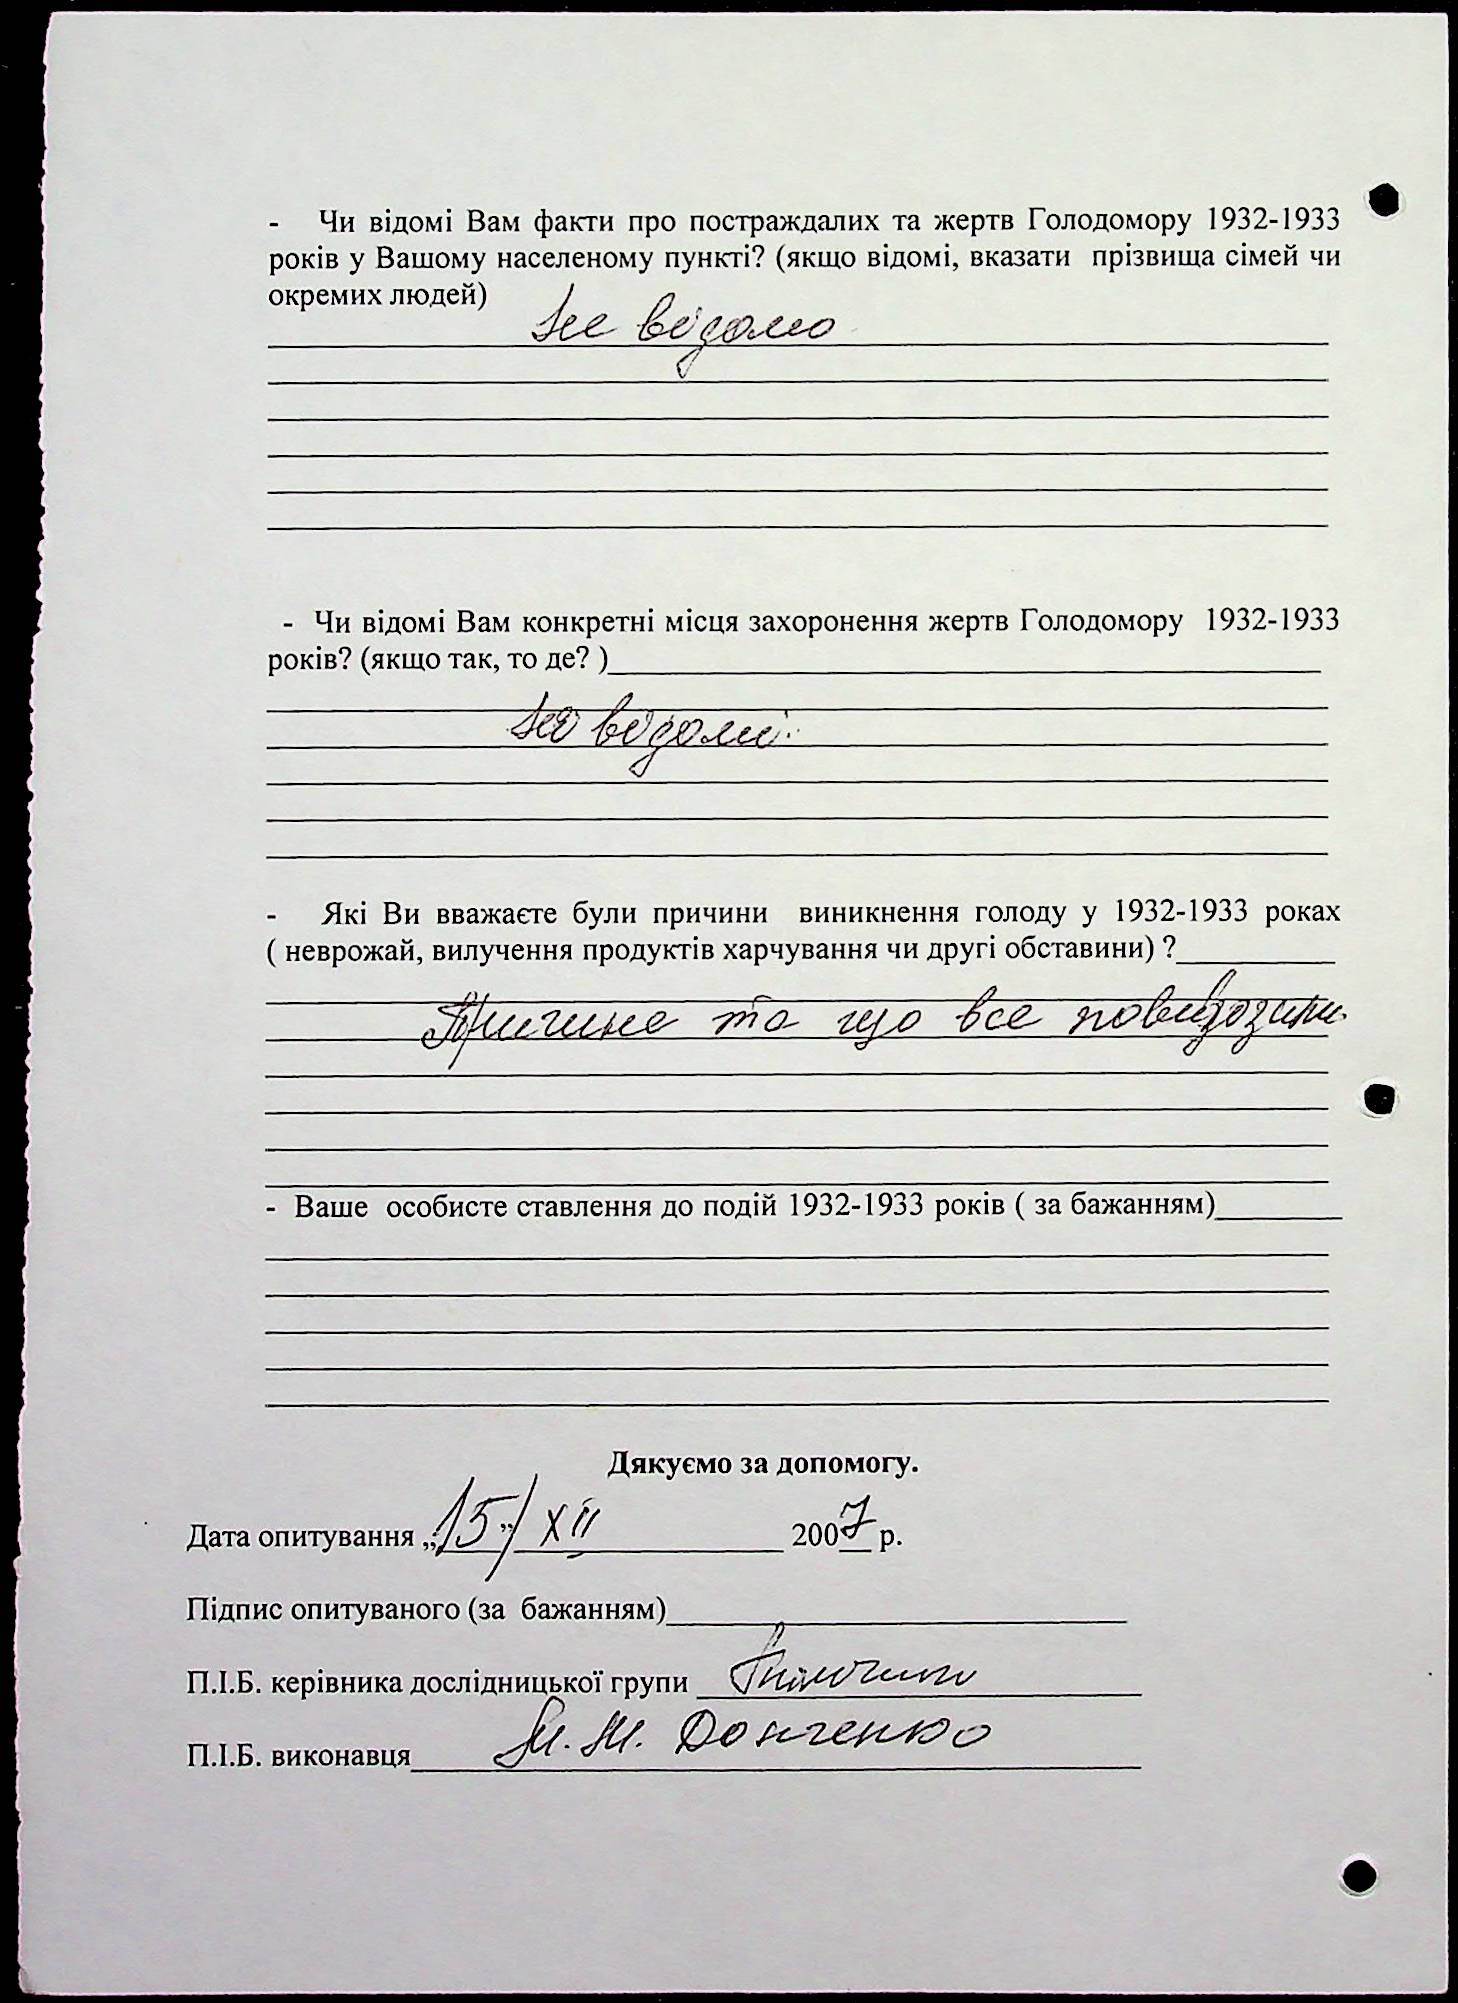 - Чи відомі Вам факти про постраждалих та жертв Голодомору 1932-1933
років у Вашому населеному пункті? (якщо відомі, вказати прізвища сімей чи
окремих людей)
не відомо
- Чи відомі Вам конкретні місця захоронення жертв Голодомору 1932-1933
років? (якщо так, то де? )
не відомі.
- Які Ви вважаєте були причини виникнення голоду у 1932-1933 роках
( неврожай, вилучення продуктів харчування чи другі обставини) ?
Причина та що все
- Ваше особисте ставлення до подій 1932-1933 років ( за бажанням)
Дякуємо за допомогу.
Дата опитування „15" XII 2007 р.
Підпис опитуваного (за бажанням)
П.І.Б. керівника дослідницької групи
П.І.Б. виконавця М.М. Донченко